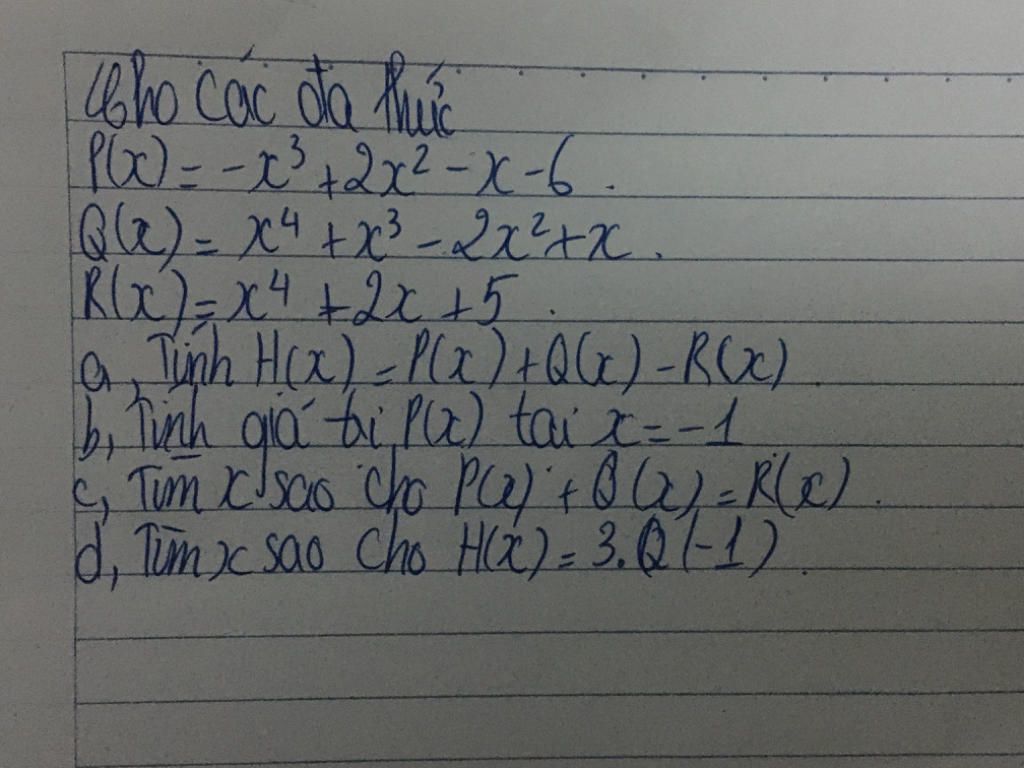 Cho các đa thức
P(x) = -x³ + 2x² - x - 6.
Q(x) = x⁴ + x³ - 2x² + x.
R(x) = x⁴ + 2x + 5.
a, Tính H(x) = P(x) + Q(x) - R(x).
b, Tính giá tri P(x) tai x = -1
c, Tìm x sao cho P(x) + Q(x) = R(x).
d, Tìm x sao cho H(x) = 3.Q(-1).